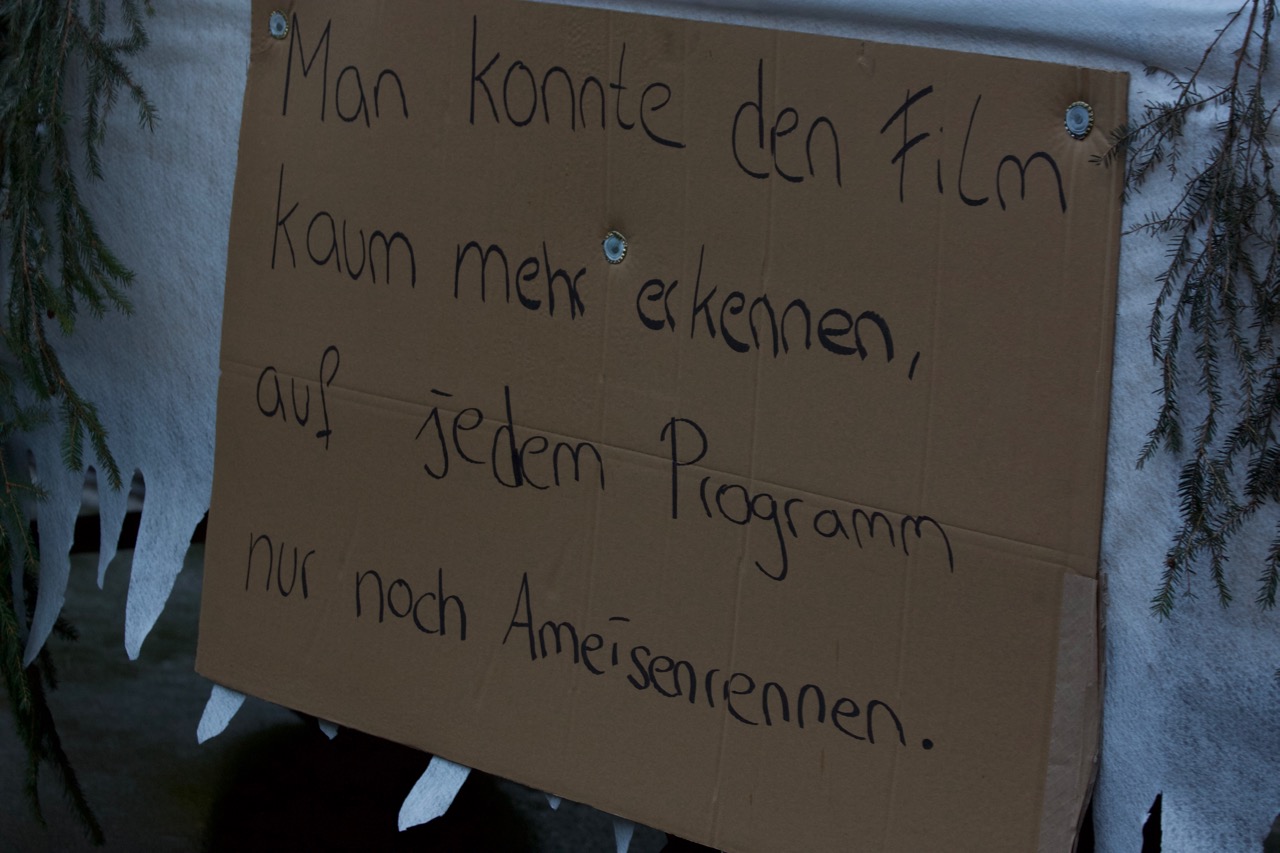 Man konnte den Film
kaum mehr erkennen,
auf jedem Programm
nur noch Ameisenrennen.